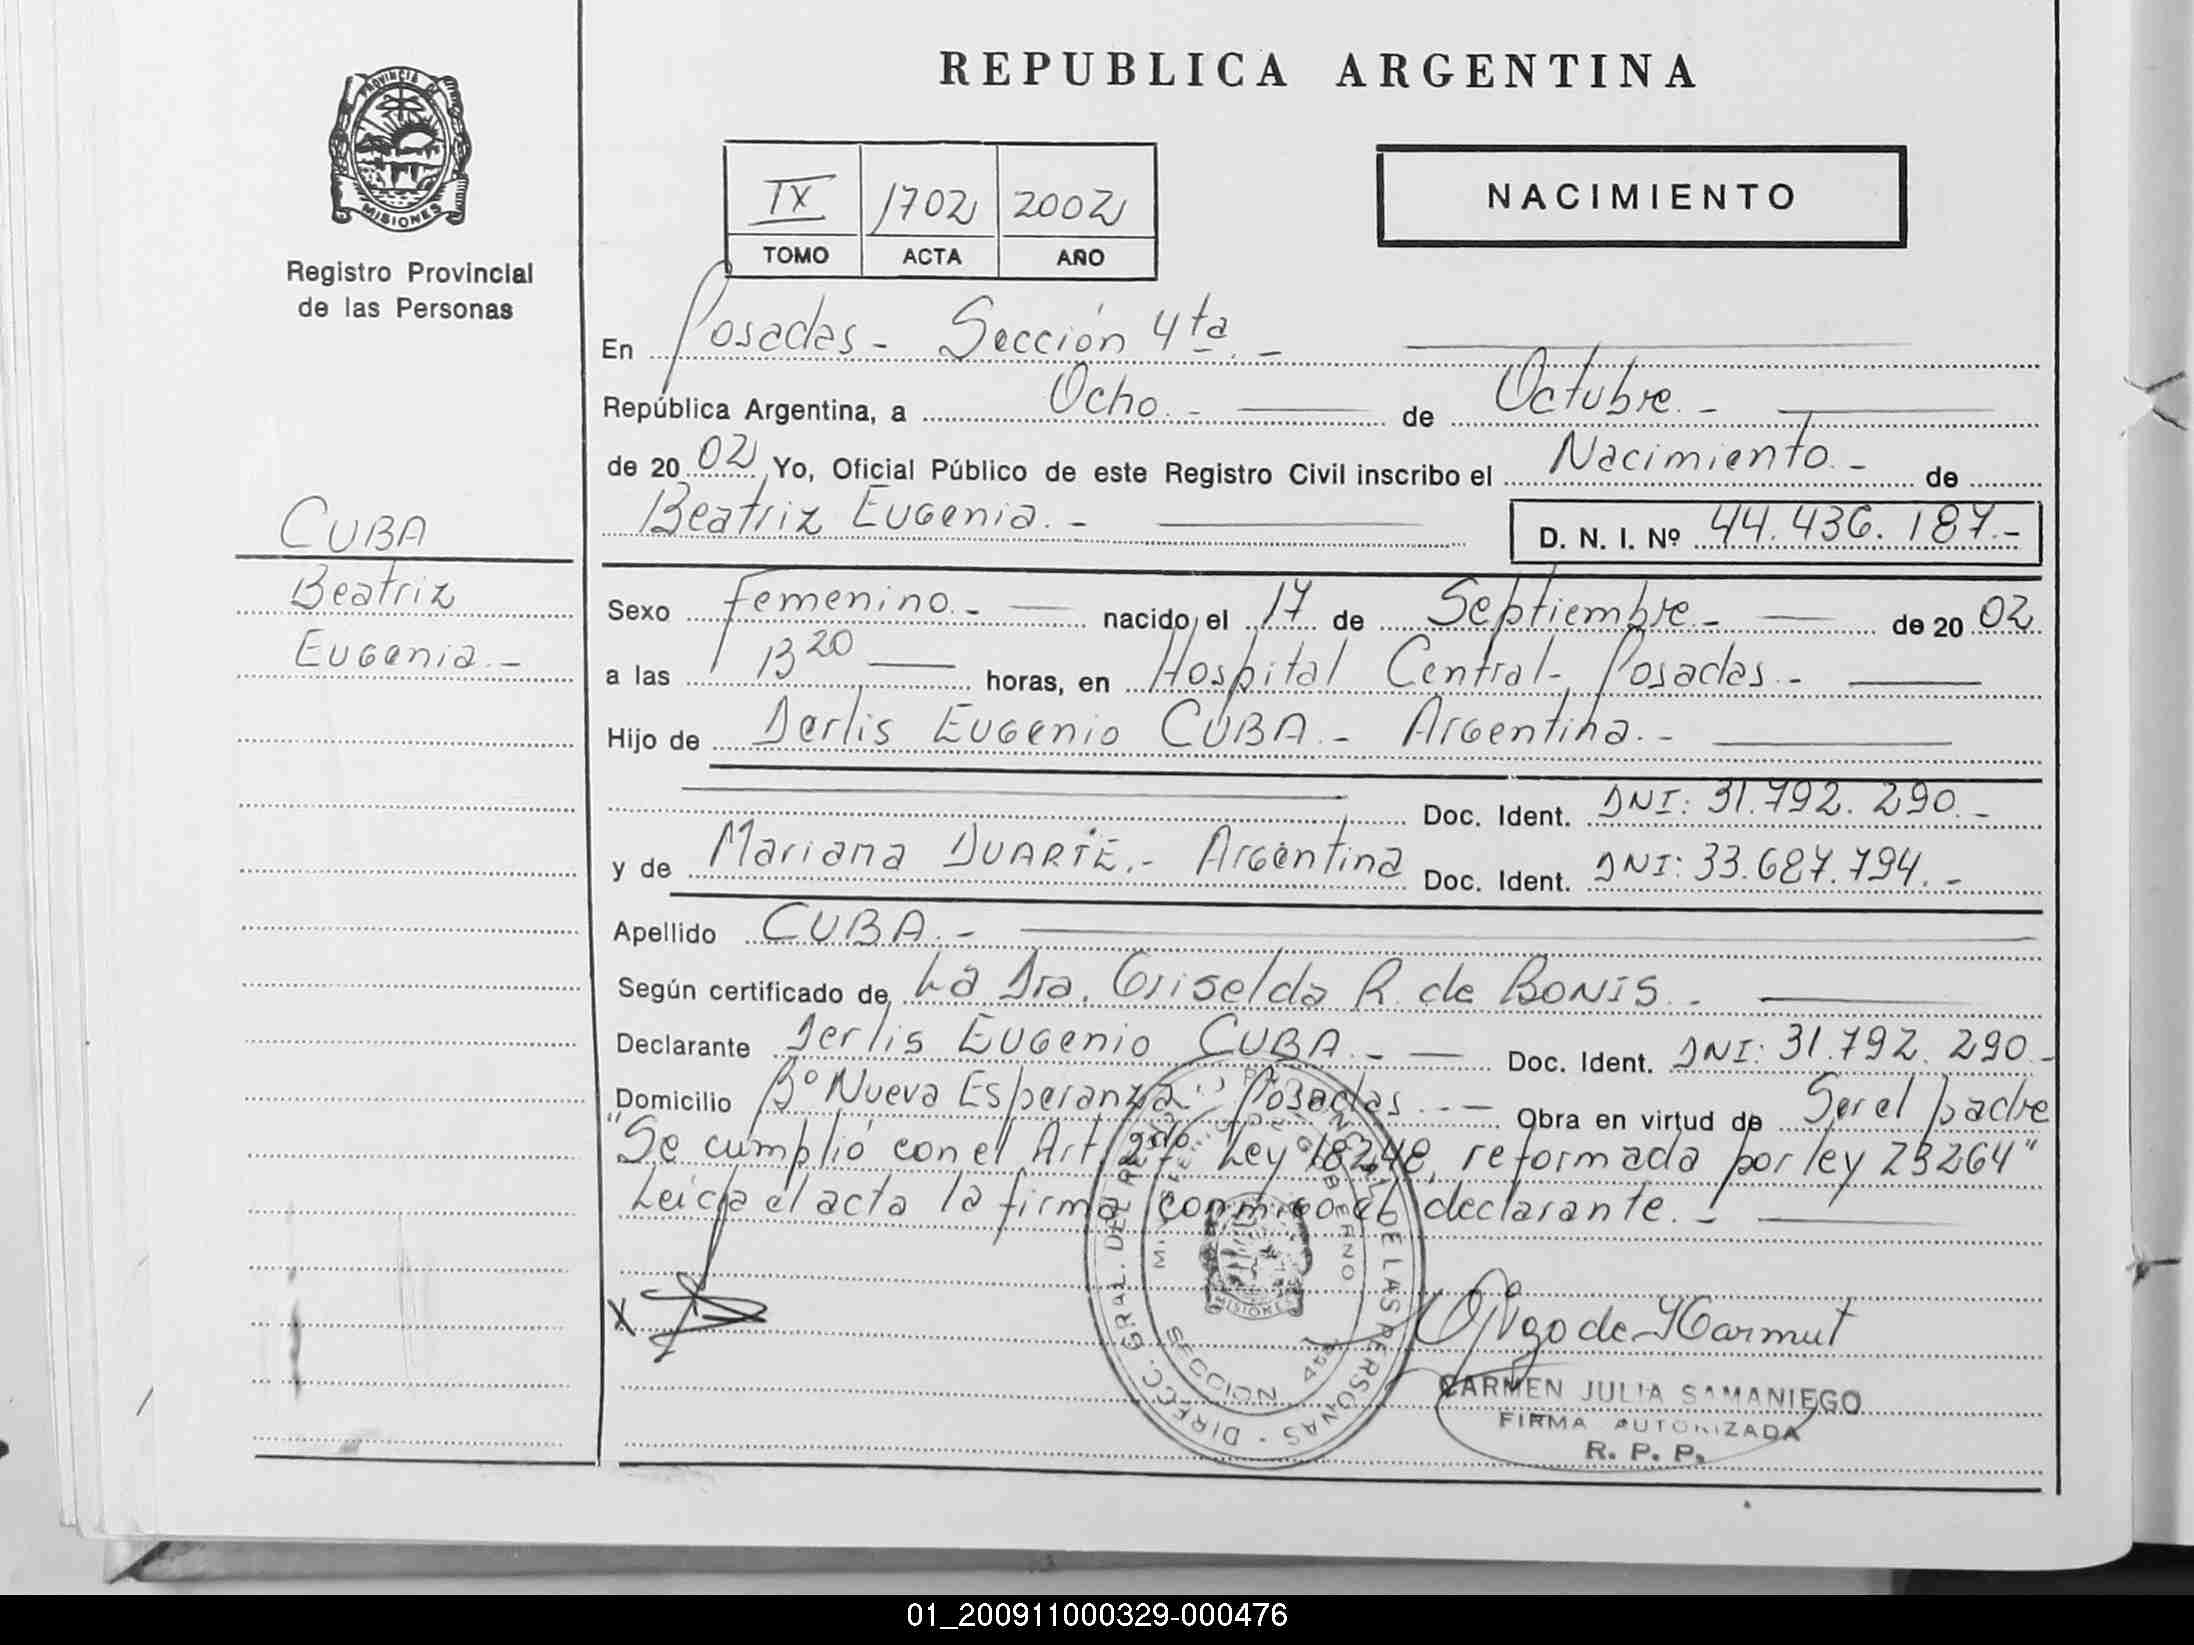 REPUBLICA ARGENTINA
PROVINCIA DE
MISIONES
Registro Provincial
de las Personas
IX 1702 2002
TOMO ACTA AÑO
NACIMIENTO
En Posadas - Sección 4ta. -
República Argentina, a Ocho. - de Octubre. -
de 20 02 Yo, Oficial Público de este Registro Civil inscribo el Nacimiento. - de
Beatriz Eugenia. - D. N. I. Nº 44.436.187.-
CUBA
Beatriz
Eugenia. -
Sexo Femenino. - nacido el 17 de Septiembre. - de 20 02
a las 13 20 horas, en Hospital Central - Posadas. -
Hijo de Derlis Eugenio CUBA. - Argentina. -
Doc. Ident. DNI: 31.792.290. -
y de Mariana DUARTE. - Argentina Doc. Ident. DNI: 33.687.794. -
Apellido CUBA. -
Según certificado de La Dra. Griselda R. de BONIS. -
Declarante Derlis Eugenio CUBA. - Doc. Ident. DNI: 31.792.290. -
Domicilio Bº Nueva Esperanza - Posadas. - Obra en virtud de Ser el padre
"Se cumplió con el Art. 2do Ley 18248, reformada por ley 23264"
Leida el acta la firma conmigo el declarante. -
X
DIRECC. GRAL. DEL REGISTRO PROVINCIAL DE LAS PERSONAS
MINISTERIO DE GOBIERNO
MISIONES
SECCION 4ta
de Harmut
CARMEN JULIA SAMANIEGO
FIRMA AUTORIZADA
R. P. P.
01_200911000329-000476